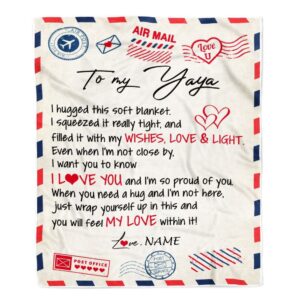 AIR MAIL
Love U
To my Yaya
I hugged this soft blanket.
I squeezed it really tight, and
filled it with my WISHES, LOVE & LIGHT.
Even when I'm not close by,
I want you to know
I L❤VE YOU and I'm so proud of you.
When you need a hug and I'm not here,
just wrap yourself up in this and
you will feel MY LOVE within it!
Love, NAME
POST OFFICE